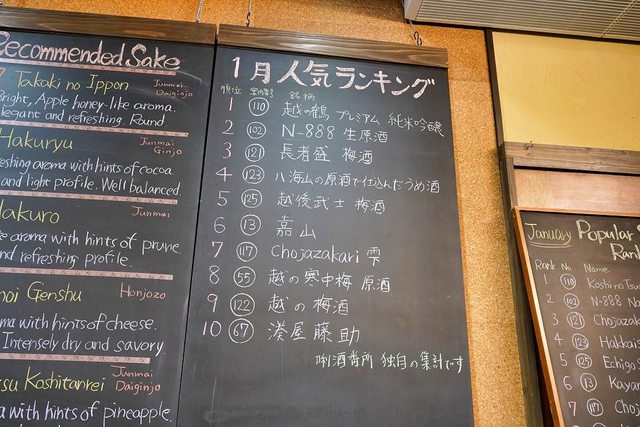 Recommended Sake
Takaki no Ippon Junmai Daiginjo
Bright, Apple honey-like aroma.
elegant and refreshing. Round.
Hakuryu Junmai Ginjo
aroma with hints of cocoa
and light profile. Well balanced.
Junmai
aroma with hints of prune
and refreshing profile.
Genshu Honjozo
aroma with hints of cheese.
Intensely dry and savory.
Koshitanrei Junmai Daiginjo
aroma with hints of pineapple.
1月人気ランキング
順位 番号 銘柄
1 110 越の鶴 プレミアム 純米吟醸
2 102 N-888 生原酒
3 121 長者盛 梅酒
4 123 八海山の原酒で仕込んだうめ酒
5 125 越後武士 梅酒
6 13 嘉山
7 117 Chojazakari 雫
8 55 越の寒中梅 原酒
9 122 越の梅酒
10 67 湊屋藤助
唎酒番所 独自の集計です
January Popular
Rank
Rank No. Name
1 110 Koshi no
2 102 N-888
3 121 Chojaza
4 123 Hakkais
5 125 Echigo
6 13 Kayam
7 117 Choja
8 55 Koshi